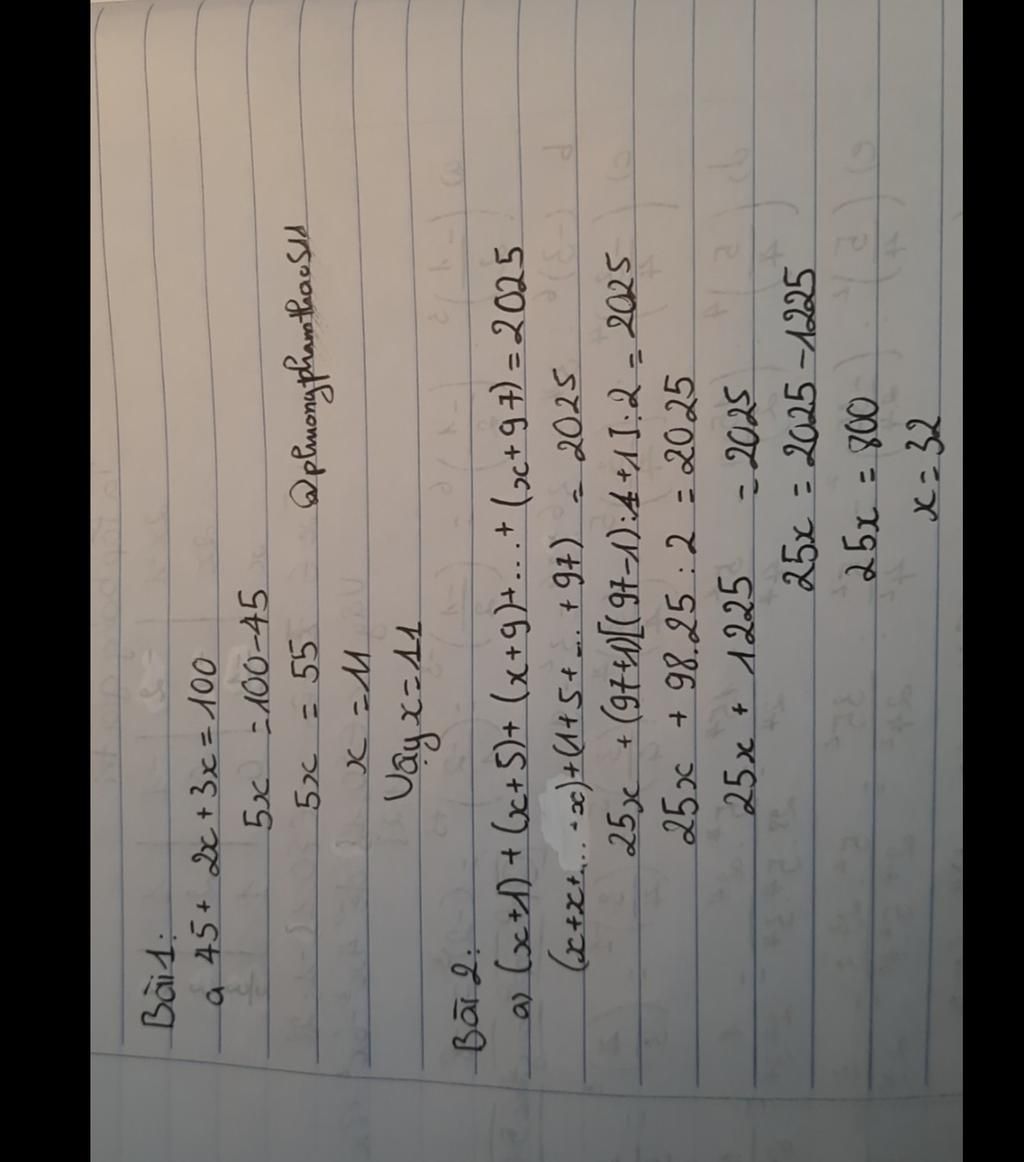 Bài 1:
a 45 + 2x + 3x = 100
5x = 100 - 45
5x = 55 @phuongphamthao511
x = 11
Vậy x = 11
Bài 2:
a) (x+1) + (x+5) + (x+9) + ... + (x+97) = 2025
(x+x+... + x) + (1+5+ ... + 97) = 2025
25x + (97+1)[(97-1):4+1]:2 = 2025
25x + 98.25 : 2 = 2025
25x + 1225 = 2025
25x = 2025 - 1225
25x = 800
x = 32